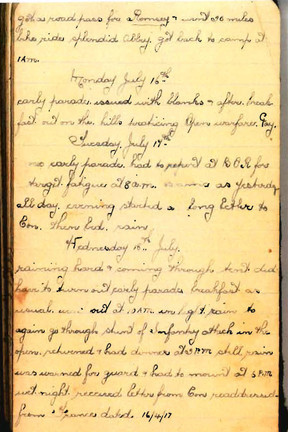 got a road pass for a Romsey & went 20 miles
bike ride splendid Abby, got back to camp at
1 AM.
Monday July 16th
early parade issued with blanks & after break
fast out on the hills practicing Open warfare.
Tuesday, July 17th
no early parade. had to report at B.O.R for
target fatigue at 8 a.m. same as yesterday
all day, evening started a long letter to
Con. then bed. rain.
Wednesday 18th July.
raining hard & coming through tent did
have to turn out early parade breakfast as
usual, went out at AM in light rain to
again go through stunt of Infantry attack in the
open, returned & had dinner at still rain
was warned for guard & had to mount at 5 PM
wet night received letter from Con readdressed
from France dated 16/4/17